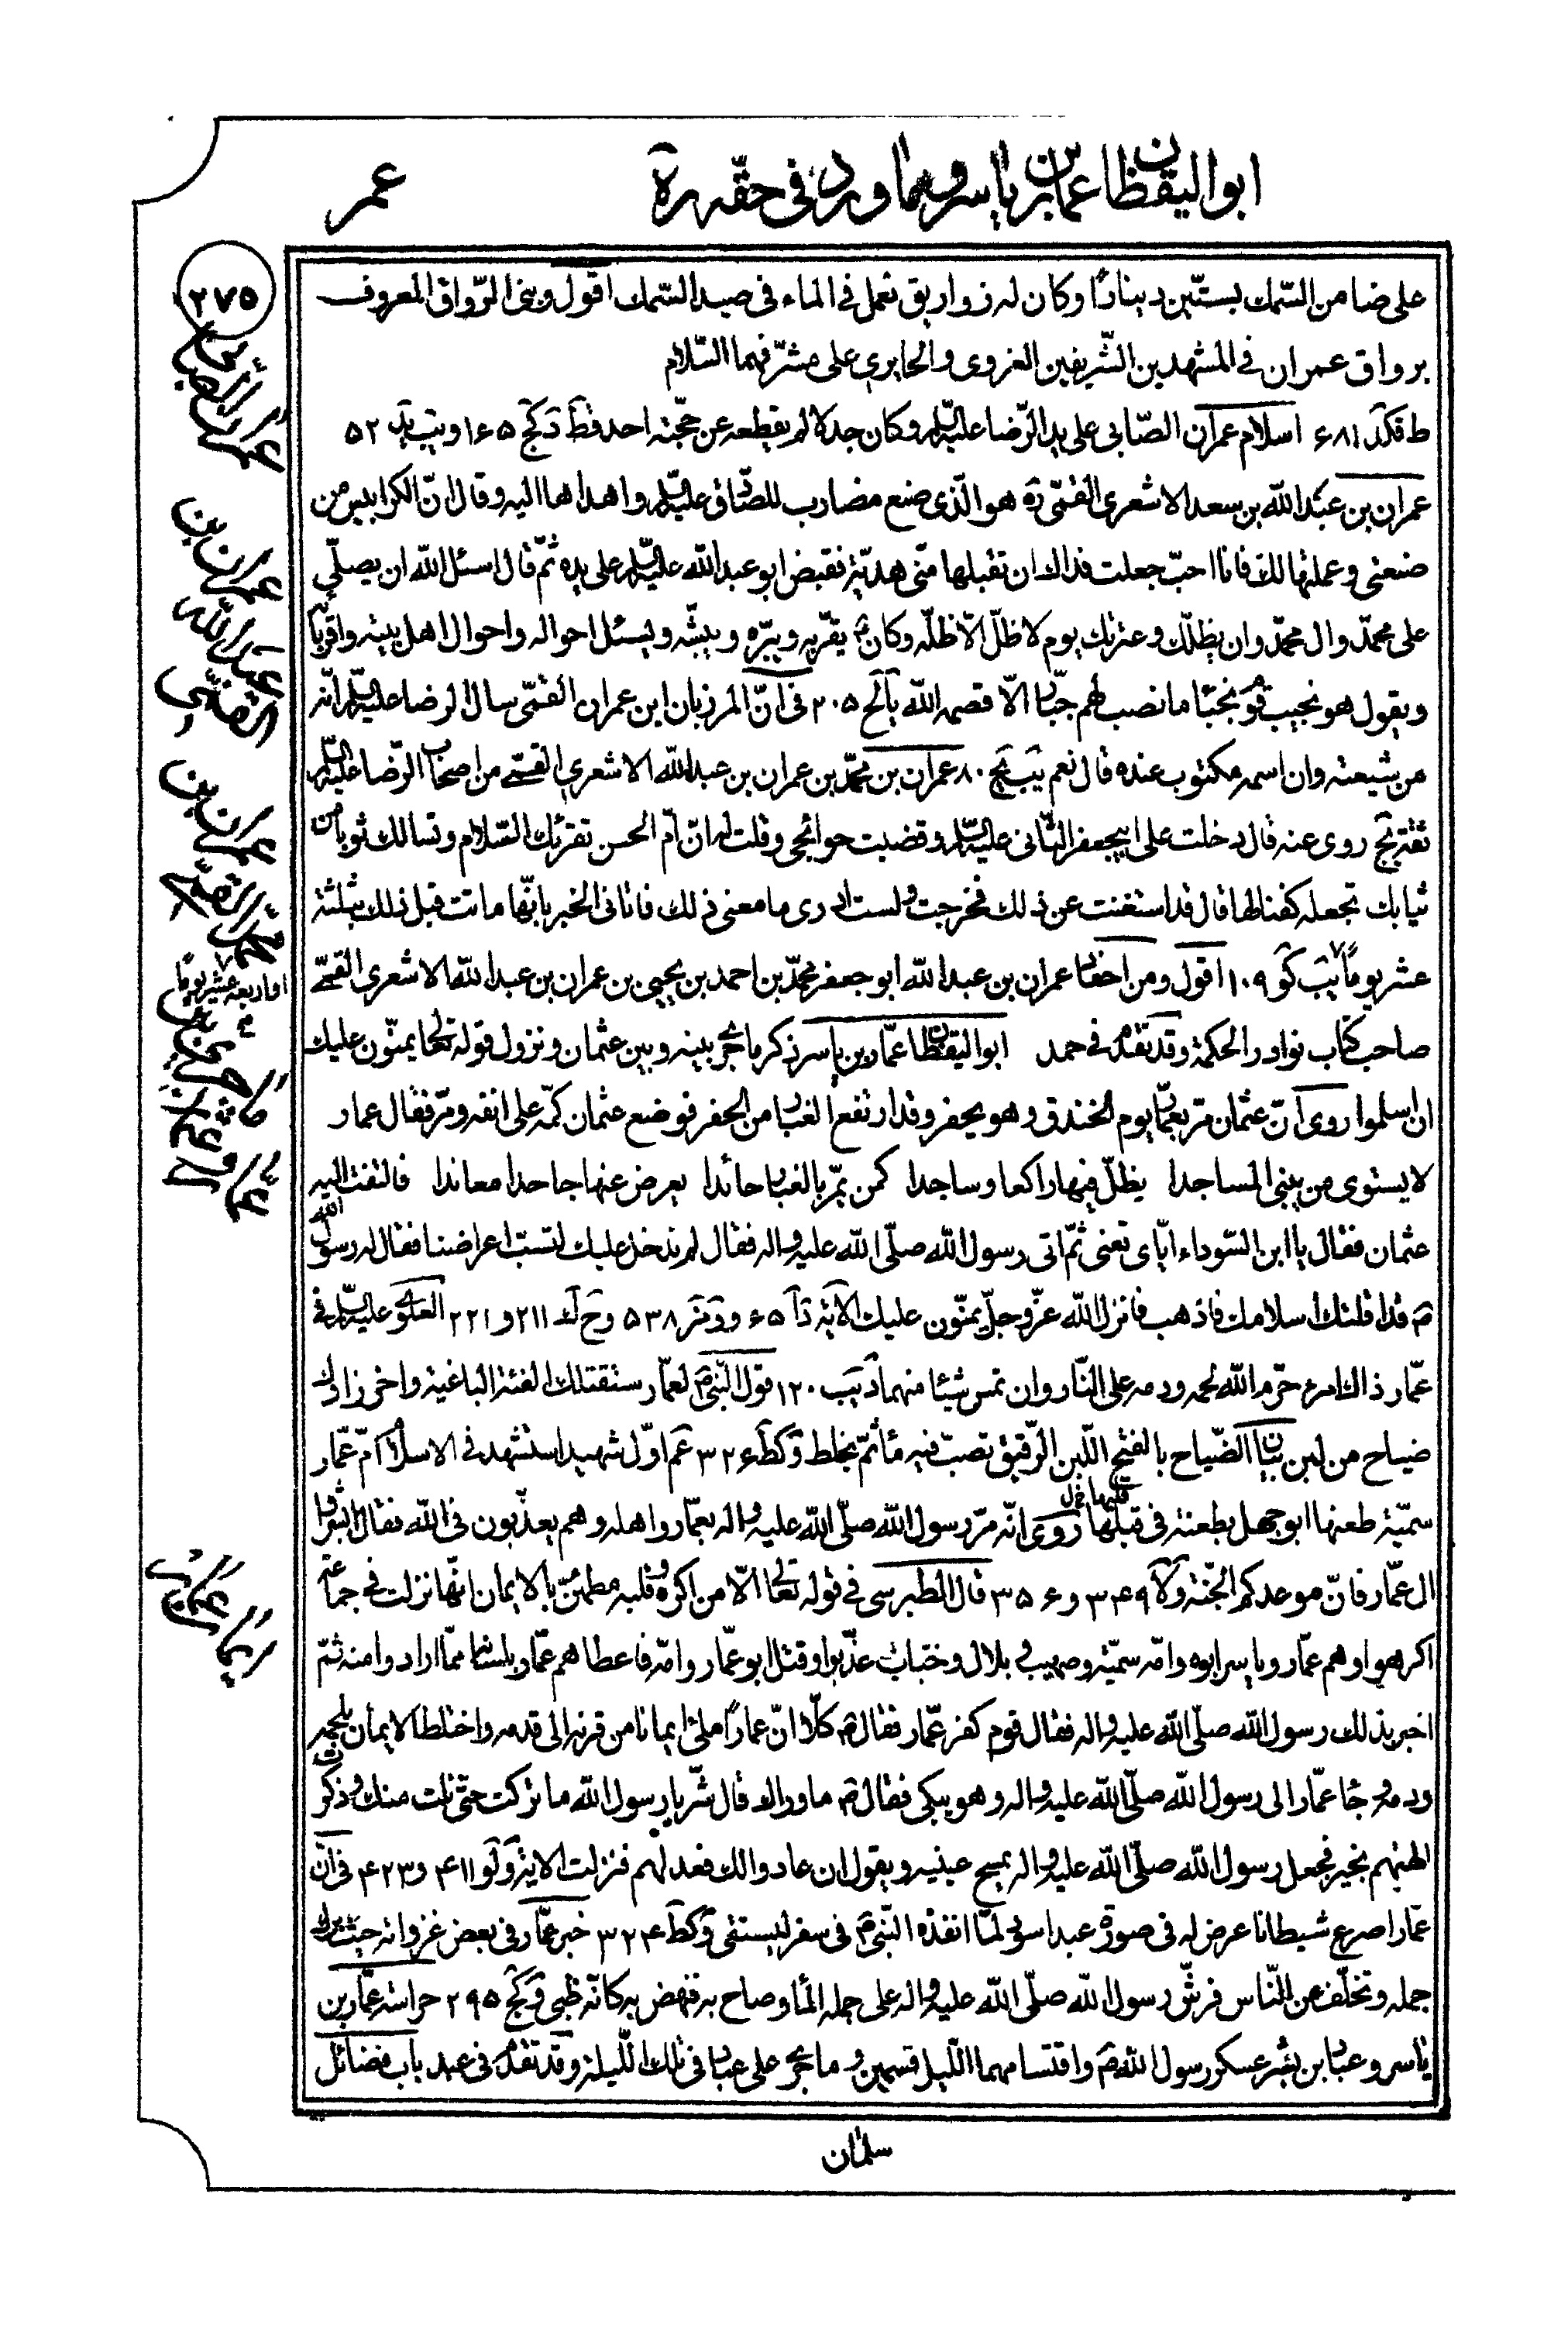 ابو اليقظان عمار بن ياسر وما ورد فى حقّه ره
عمر
٢٧٥
على ضامن السّمك بستّين دينارًا وكان له زواريق تعمل فى الماء فى صيد السّمك اقول وبنى الرّواق المعروف
برواق عمران فى المشهدين الشّريفين الغروى والحايرى على مشرّفهما السّلام
ط قكد ٦٨١ اسلام عمران الصّابى على يد الرّضا عليه السلم وكان جدلا لم يقطعه عن حجّته احد قط د كج ١٦٥ ويب يد ٥٢
عمران بن عبد الله بن سعد الاشعرى القمّى ره هو الّذى صنع مضارب للصّادق عليه السلم واهداها اليه وقال انّ الكرابيس من
صنعتى وعملتها لك فانا احبّ جعلت فداك ان تقبلها منّى هديّة فقبض ابو عبد الله عليه السلم على يده ثمّ قال اسئل الله ان يصلّى
على محمّد وال محمّد وان يظلّك وعترتك يوم لا ظلّ الّا ظلّه وكان ع يقرّبه ويبرّه ويبشّه ويسئل احواله واحوال اهل بيته واقربائه
ويقول هو نجيب قوم نجبا ما نصب لهم جبّار الّا قصمه الله يا لح ٢٠٥ فى انّ المرزبان ابن عمران القمّى سال الرضا عليه السلم انّه
من شيعته وان اسمه مكتوب عنده قال نعم يب يج ٨٠ عمران بن محمّد بن عمران بن عبد الله الاشعرى القمّى من اصحاب الرّضا عليه السلم
ثقة يج روى عنه قال دخلت على ابيجعفر الثّانى عليه السلم وقضيت حوائجى وقلت له انّ امّ الحسن تقرئك السّلام وتسالك ثوبا من
ثيابك تجعله كفنا لها قال قد استغنت عن ذلك فخرجت ولست ادرى ما معنى ذلك فاتانى الخبر بانّها ماتت قبل ذلك بثلثة
عشر يومًا يب كو ١٠٩ اقول ومن احفاد عمران بن عبد الله ابو جعفر محمّد بن احمد بن يحيى بن عمران بن عبد الله الاشعرى القمّى
صاحب كتاب نوادر الحكمة وقد تقدّم فى حمد ابو اليقظان عمّار بن ياسر ذكر ما جرى بينه وبين عثمان ونزول قوله تعالى يمنّون عليك
ان اسلموا روى انّ عثمان مرّ بعمّار يوم الخندق وهو يحفر وقد ارتفع الغبار من الحفر فوضع عثمان كمّه على انفه ومرّ فقال عمار
لا يستوى من يبنى المساجدا يظلّ فيها راكعا وساجدا كمن يمرّ بالغبار حائدا يعرض عنها جاحدا معاندا فالتفت اليه
عثمان فقال يا ابن السّوداء ايّاى تعنى ثمّ اتى رسول الله صلّى الله عليه واله فقال لم ندخل عليك لتسبّ اعراضنا فقال له رسول الله
ص قد اقلتك اسلامك فاذهب فانزل الله عزّوجلّ يمنّون عليك الاية ذا ٦٥ و و نر ٥٣٨ وح ك ٢١١ و ٢٢١ العلوى عليه السلم فى
عمّار ذاك امرء حرّم الله لحمه ودمه على النّار وان تمس شيئا منهما د يب ١٢٠ قول النّبى ص لعمّار ستقتلك الفئة الباغية واخر زادك
ضياح من لبن بيان الضّياح بالفتح اللّبن الرّقيق تصبّ فيه ماء ثمّ يخلط و كط ٣٢٦ عم اوّل شهيد استشهد فى الاسلام امّ عمّار
سميّة طعنها ابو جهل بطعنة فى قبلها روى انّه مرّ رسول الله صلّى الله عليه واله بعمّار واهله وهم يعذّبون فى الله فقال ابشروا
قلبها خ ل
ال عمّار فانّ موعدكم الجنّة و لا ٣٤٩ و ٣٥٦ قال الطبرسى فى قوله تعالى الّا من اكره وقلبه مطمئنّ بالايمان انّها نزلت فى جماعة
اكرهوا وهم عمّار وياسر ابوه وامّه سميّة وصهيب وبلال وخبّاب عذّبوا وقتل ابو عمّار وامّه فاعطاهم عمّار بلسانه ممّا ارادوا منه ثمّ
اخبر بذلك رسول الله صلّى الله عليه واله فقال قوم كفر عمّار فقال ص كلّا انّ عمارًا ملئ ايمانا من قرنه الى قدمه واختلط الايمان بلحمه
ودمه وجاء عمّار الى رسول الله صلّى الله عليه واله وهو يبكى فقال ص ما وراك قال شّر يا رسول الله ما تركت حتّى نلت منك وذكرت
الهتهم بخير فجعل رسول الله صلّى الله عليه واله يمسح عينيه ويقول ان عادوا لك فعد لهم فنزلت الاية و لو ٤١١ و ٤٢٣ فى انّ
عمّارا صرع شيطانا عرض له فى صورة عبد اسود لمّا انفذه النّبى ص فى سفر ليستقى و كط ٣٢٤ خبر عمّار فى بعض غزواته حيث برك
جمله وتخلّف عن النّاس فرشّ رسول الله صلّى الله عليه واله على جمله الماء وصاح به فنهض به كانّه ظبى و كج ٢٩٥ حراسة عمّار بن
ياسر وعبّاد بن بشر عسكر رسول الله ص واقتسامهما اللّيل قسمين وما جرى على عبّاد فى تلك اللّيلة وقد تقدّم فى عبد باب فضائل
سلمان
عمران الصابى
عمران بن عبد الله القمّى
عمران بن محمّد القمّى
او اربعة عشر يومًا
ايمان عمّار